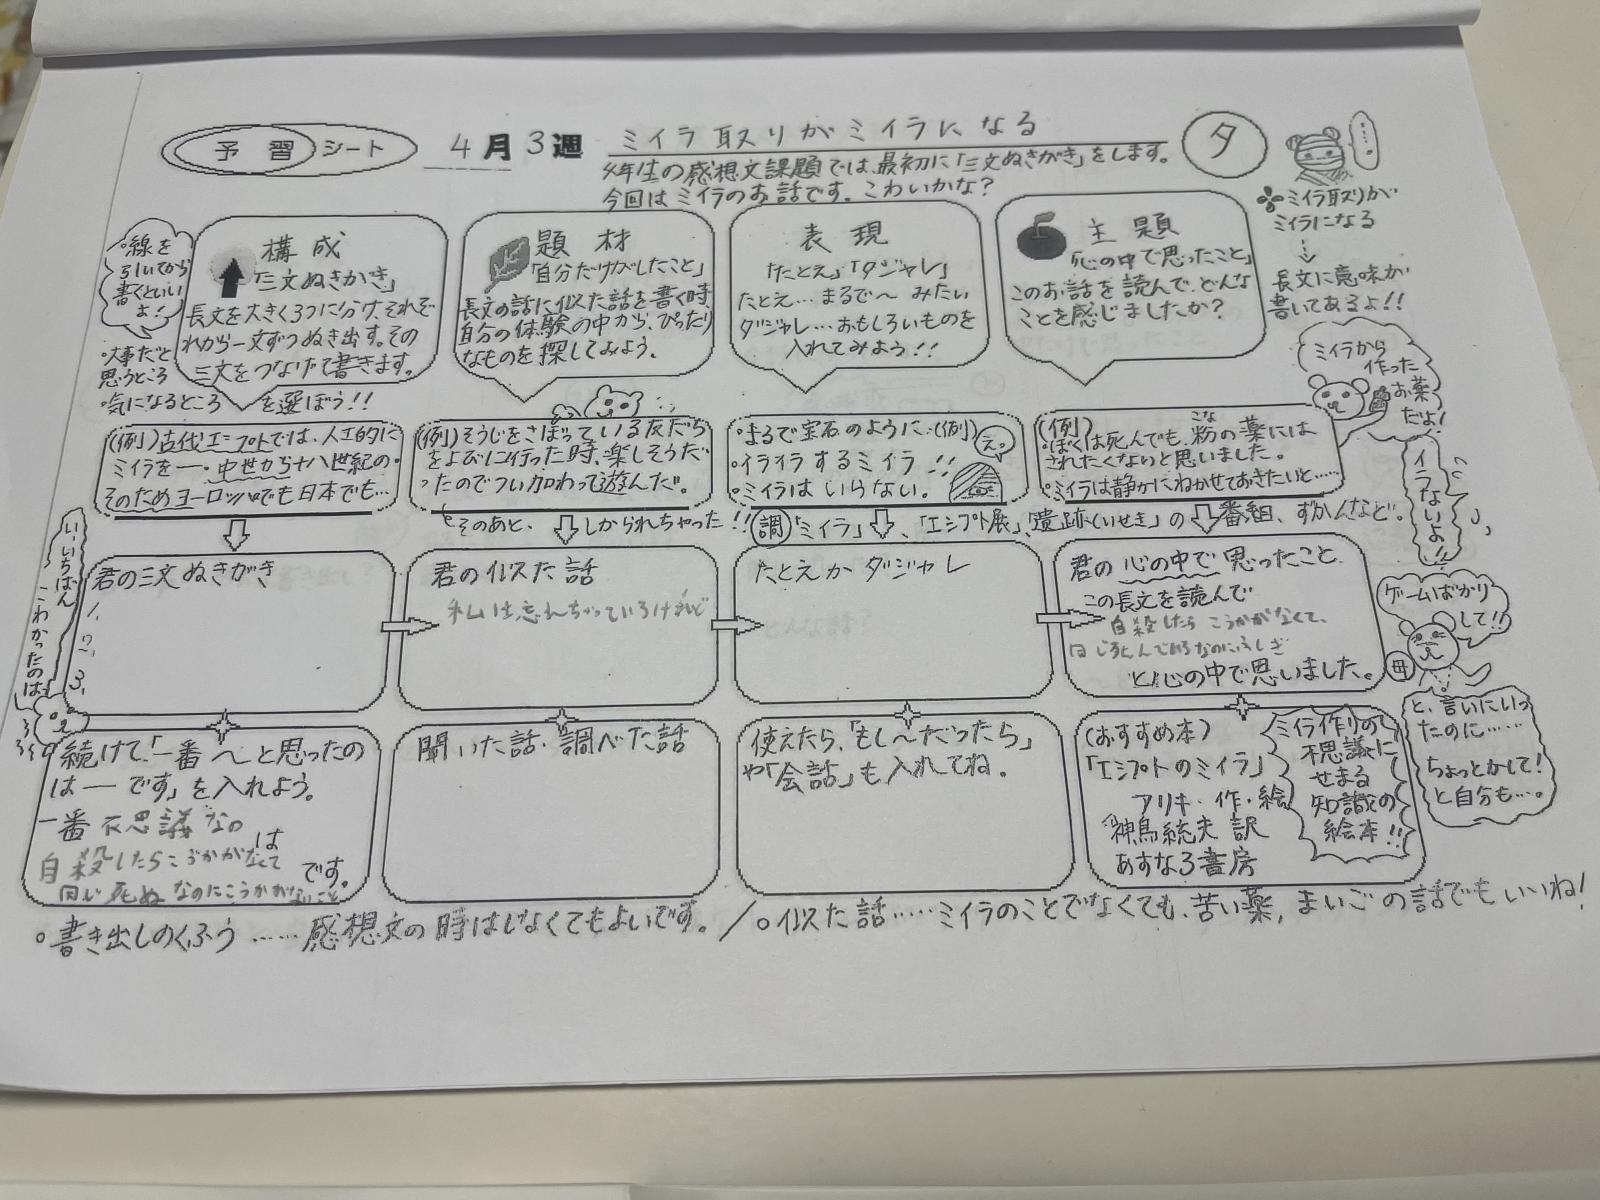 予習シート
4月3週
ミイラ取りがミイラになる
タ
4年生の感想文課題では、最初に「三文ぬきがき」をします。
今回はミイラのお話です。こわいかな?
・線を
引いてから
書くといい
よ!
・大事だと
思うところ
・気になるところ を選ぼう!!
構成
「三文ぬきがき」
長文を大きく3つに分け、それぞ
れから一文ずつぬき出す。その
三文をつなげて書きます。
題材
「自分だけがしたこと」
長文の話に似た話を書く時、
自分の体験の中から、ぴったり
なものを探してみよう。
表現
「たとえ」「ダジャレ」
たとえ…まるで〜みたい
ダジャレ…おもしろいものを
入れてみよう!!
主題
「心の中で思ったこと」
このお話を読んで、どんな
ことを感じましたか?
ミイラ取りが
ミイラになる
長文に意味が
書いてあるよ!!
ミイラから
作った
お薬
だよ!
(例)古代エジプトでは、人工的に
ミイラを―・中世から十八世紀の・
そのためヨーロッパでも日本でも…
(例)そうじをさぼっている友だち
をよびに行った時、楽しそうだ
ったのでつい加わって遊んだ。
そのあと、しかられちゃった!!
・まるで宝石のように…(例)
・イライラするミイラ!!
・ミイラはいらない。
えっ
(例)
・ぼくは死んでも、粉の薬には
こな
されたくないと思いました。
・ミイラは静かにねかせておきたいと…
イラないよ!!
調「ミイラ」、「エジプト展」、「遺跡(いせき)」の番組、ずかんなど。
い、いちばん
こわかったのは
君の三文ぬきがき
1、
2、
3、
君の似た話
私は忘れちゃっているけれど
たとえかダジャレ
君の心の中で思ったこと
この長文を読んで
自殺したらこうかがなくて、
同じ死んでいるなのにふしぎ
と心の中で思いました。
ゲームばかり
して!!
母
と、言いにいっ
たのに……
ちょっとかして!
と自分も…。
続けて「一番〜と思ったの
は―です」を入れよう。
一番不思議なの
は
自殺したらこうかがなくて
同じ死ぬなのにこうかがないこと
です。
聞いた話・調べた話
使えたら、「もし〜だったら」
や「会話」も入れてね。
(おすすめ本)
「エジプトのミイラ」
アリキ・作・絵
神鳥統夫 訳
あすなろ書房
ミイラ作りの
不思議に
せまる
知識の
絵本!!
○書き出しのくふう……感想文の時はじなくてもよいです。／○似た話……ミイラのことでなくても、苦い薬、まいごの話でもいいね!